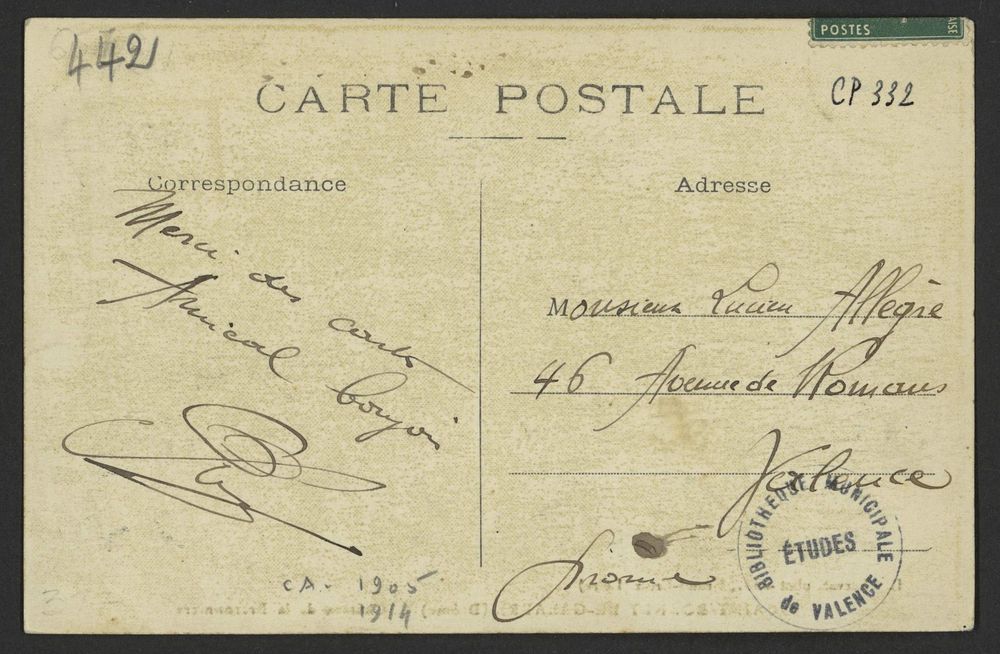 442
POSTES
CARTE POSTALE
CP 332
Correspondance
Merci des cartes
Amical bonjour
Adresse
Monsieur Lucien Allègre
46 Avenue de Romans
Valence
Drome
BIBLIOTHEQUE MUNICIPALE
ÉTUDES
de VALENCE
CA. 1905
1914